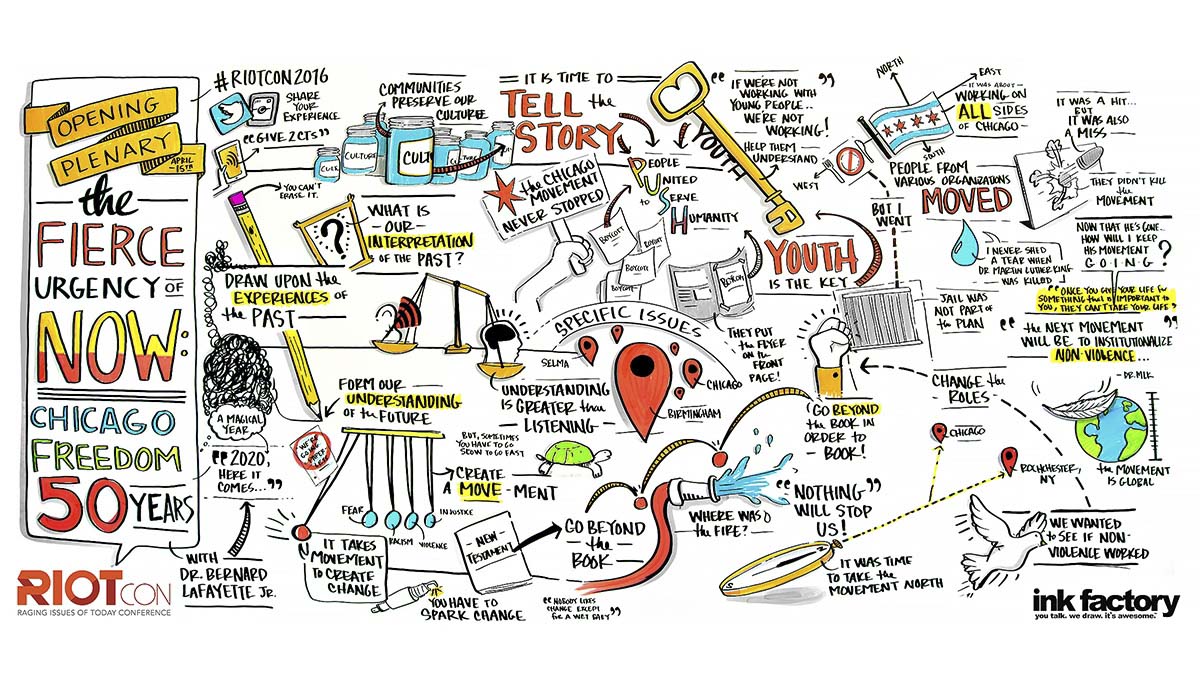 OPENING
PLENARY
APRIL
-15TH-
the
FIERCE
URGENCY OF
NOW:
CHICAGO
FREEDOM
50 YEARS
WITH
DR. BERNARD
LAFAYETTE JR.
RIOTCON
RAGING ISSUES OF TODAY CONFERENCE
#RIOTCON2016
SHARE
YOUR
EXPERIENCE
"GIVE 2CTS"
YOU CAN'T
ERASE IT.
COMMUNITIES
PRESERVE OUR
CULTURE
CULTURE
CULT
IT IS TIME TO
TELL the
STORY
the CHICAGO
MOVEMENT
NEVER STOPPED
PEOPLE
UNITED
to SERVE
HUMANITY
YOUTH
"IF WE'RE NOT
WORKING WITH
YOUNG PEOPLE..
WE'RE NOT
WORKING!"
HELP THEM
UNDERSTAND
NORTH
EAST
SOUTH
WEST
IT WAS ABOUT
WORKING ON
ALL SIDES
OF CHICAGO
PEOPLE FROM
VARIOUS ORGANIZATIONS
MOVED
IT WAS A HIT...
BUT
IT WAS ALSO
A MISS
THEY DIDN'T KILL
the
MOVEMENT
WHAT IS
OUR
INTERPRETATION
OF THE PAST?
?
DRAW UPON the
EXPERIENCES OF
the PAST
BOYCOTT
BOYCOTT
BOYCOTT
BOYCOTT
BOYCOTT
THEY PUT
the
FLYER
ON the
FRONT
PAGE!
YOUTH
IS THE KEY
BUT I
WENT
JAIL WAS
NOT PART OF
the PLAN
I NEVER SHED
A TEAR WHEN
DR MARTIN LUTHER KING
WAS KILLED
NOW THAT HE'S GONE..
HOW WILL I KEEP
HIS MOVEMENT
GOING?
"ONCE YOU GIVE YOUR LIFE for
SOMETHING that is IMPORTANT to
YOU, THEY CAN'T TAKE YOUR LIFE"
"the NEXT MOVEMENT
WILL BE TO INSTITUTIONALIZE
NON-VIOLENCE..."
- DR. MLK
SPECIFIC ISSUES
SELMA
CHICAGO
BIRMINGHAM
UNDERSTANDING
IS GREATER than
LISTENING
FORM OUR
UNDERSTANDING
OF the FUTURE
A MAGICAL
YEAR
"2020,
HERE IT
COMES..."
BUT, SOMETIMES
YOU HAVE TO GO
SLOW TO GO FAST
CREATE
A MOVE-MENT
FEAR
RACISM
VIOLENCE
INJUSTICE
IT TAKES
MOVEMENT
TO CREATE
CHANGE
YOU HAVE TO
SPARK CHANGE
NEW
TESTAMENT
GO BEYOND
the
BOOK
"NOBODY LIKES
CHANGE EXCEPT
for A WET BABY"
WHERE WAS
THE FIRE?
'GO BEYOND
the BOOK IN
ORDER TO
BOOK!
"NOTHING"
WILL STOP
US!
CHANGE the
ROLES
CHICAGO
ROCHCHESTER,
NY
IT WAS TIME
TO TAKE the
MOVEMENT NORTH
the MOVEMENT
IS GLOBAL
WE WANTED
to SEE IF NON-
VIOLENCE WORKED
ink factory
you talk. we draw. it's awesome.